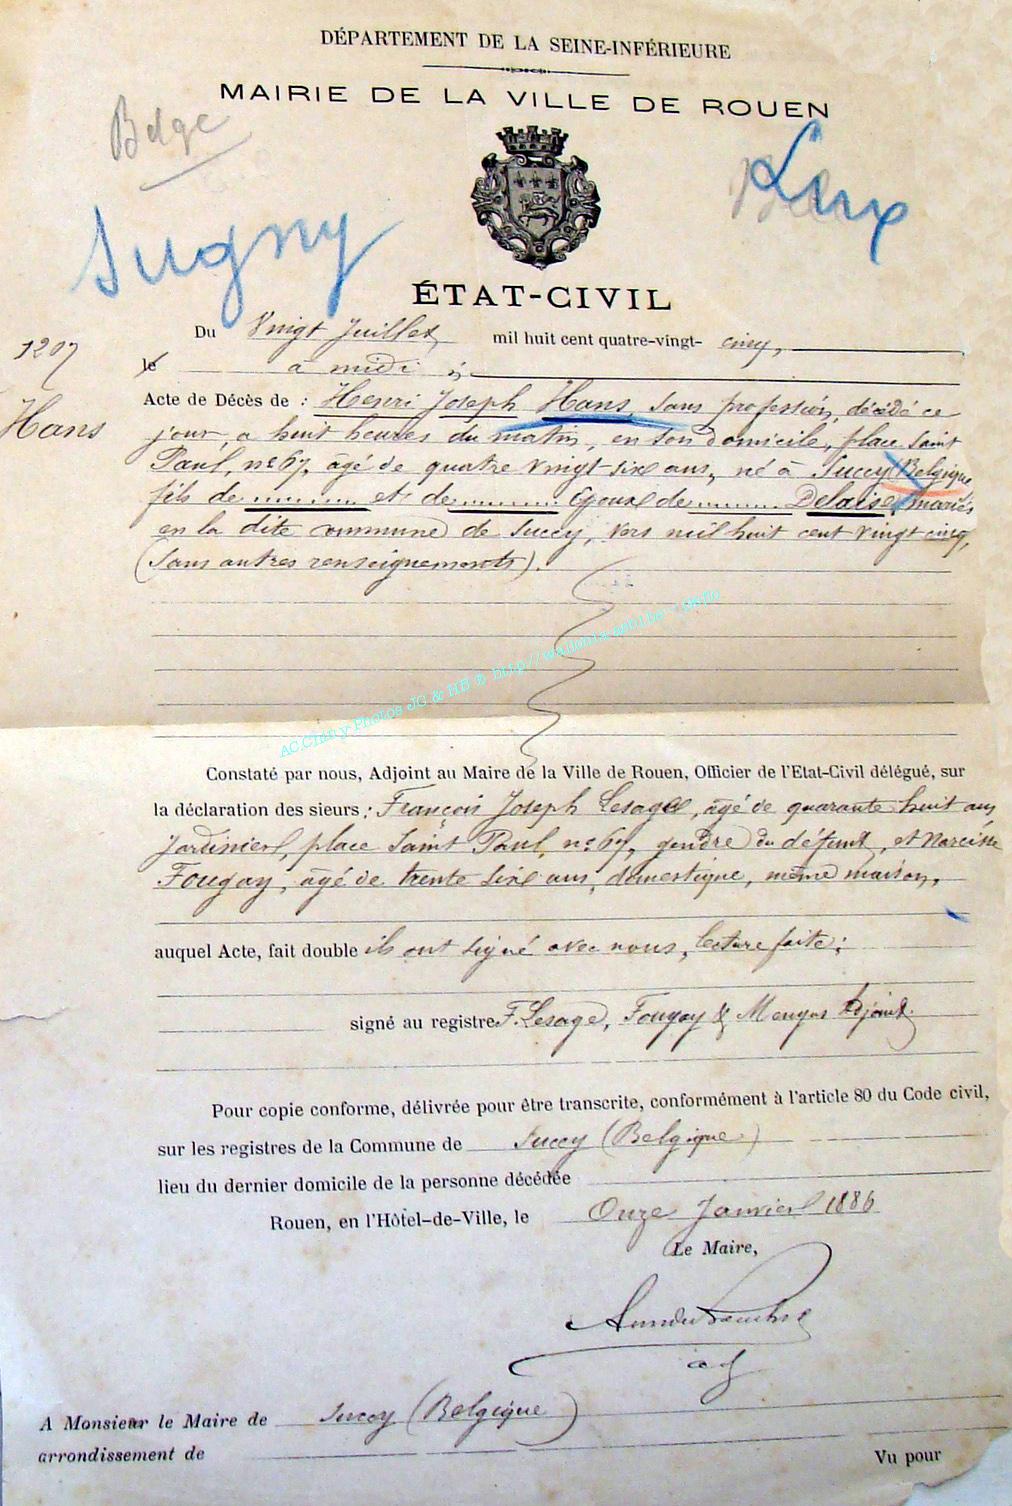 DÉPARTEMENT DE LA SEINE-INFÉRIEURE
MAIRIE DE LA VILLE DE ROUEN
Belge
Lux
Sugny
ÉTAT-CIVIL
Du Vingt Juillet mil huit cent quatre-vingt- cinq,
1207
le à midi ;
Hans
Acte de Décès de : Henri Joseph Hans, sans profession, décédé ce
jour, à huit heures du matin, en son domicile, place Saint
Paul, n° 67, âgé de quatre vingt-six ans, né à Succy (Belgique
fils de ............ et de ............ Epoux de ............ Delaise, mariés
en la dite commune de Succy, vers mil huit cent vingt cinq,
(sans autres renseignements).
AC.Chiny Photos JG & HB © http://
Constaté par nous, Adjoint au Maire de la Ville de Rouen, Officier de l'Etat-Civil délégué, sur
la déclaration des sieurs : François Joseph Lesage, âgé de quarante huit ans
Jardinier, place Saint Paul, n° 67, gendre du défunt, et Narcisse
Fougay, âgé de trente six ans, domestique, même maison,
auquel Acte, fait double ils ont signé avec nous, lecture faite ;
signé au registre F. Lesage, Fougay & Adjoint.
Pour copie conforme, délivrée pour être transcrite, conformément à l'article 80 du Code civil,
sur les registres de la Commune de Succy (Belgique)
lieu du dernier domicile de la personne décédée
Rouen, en l'Hôtel-de-Ville, le Onze Janvier 1886
Le Maire,
adj
A Monsieur le Maire de Succy (Belgique)
arrondissement de
Vu pour